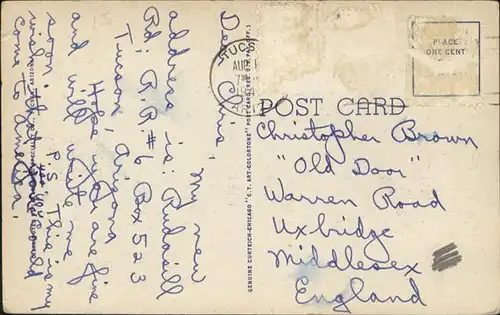 Dear Chris,
My new
address is: Rudasill
Rd; R.R.#6, Box 523
Tucson, Arizona
Hope you are fine
and will write me
soon.
wish
come to America.
P.S. This is my
TUCS
AUG
POST CARD
PLACE
ONE CENT
Christopher Brown
"Old Door"
Warren Road
Uxbridge
Middlesex
England
GENUINE CURTEICH-CHICAGO "C. T. ART-COLORTONE" POST CARD (REG. U.S. PAT. OFF.)